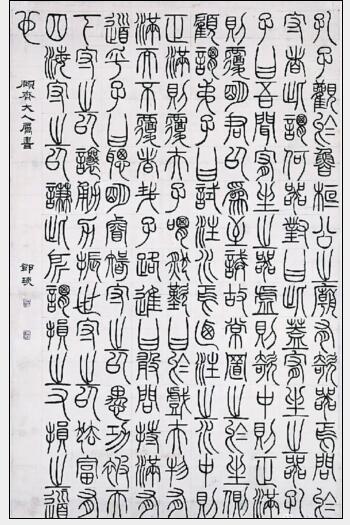 孔子觀於魯桓公之廟有欹器焉問於
守者此謂何器對曰此蓋宥坐之器孔
子曰吾聞宥坐之器虛則欹中則正滿
則覆明君以為至誡故常置之於坐側
顧謂弟子曰試注水焉乃注之水中則
正滿則覆夫子喟然歎曰於戲夫物有
滿而不覆者哉子路進曰敢問持滿有
道乎子曰聰明睿智守之以愚功被天
下守之以讓勇力振世守之以怯富有
四海守之以謙此所謂損之又損之道
也
顧齋大人屬書
鄧琰